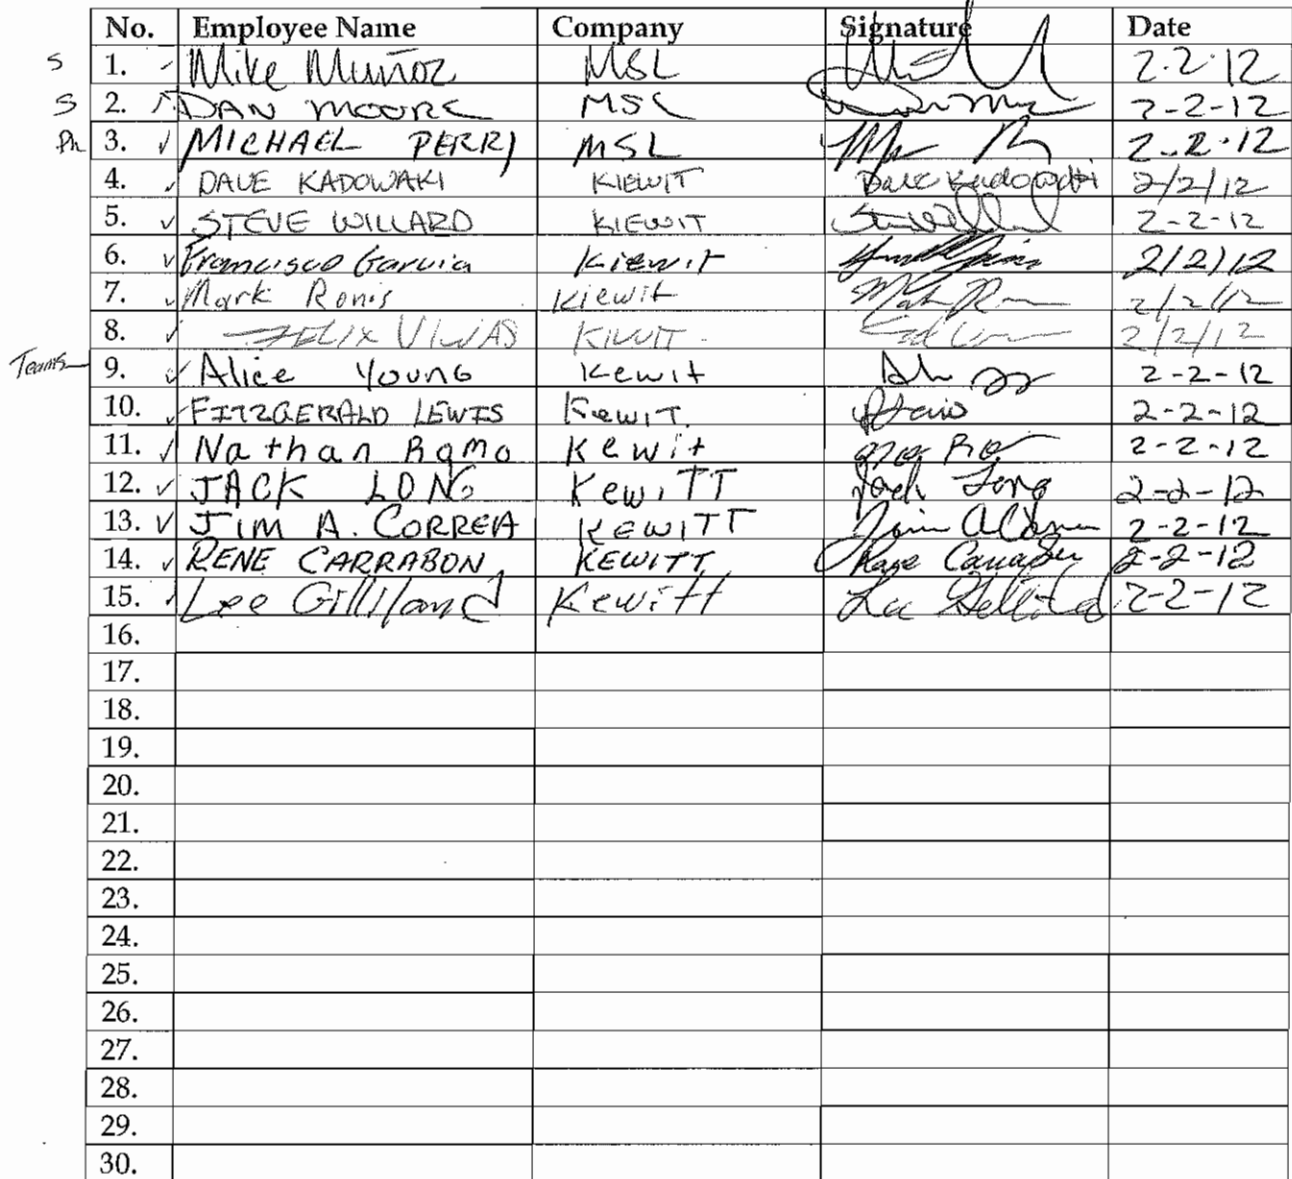 No. Employee Name Company Signature Date
S 1. Mike Muñoz MSL 2.2.12
S 2. DAN MOORE MSL 2-2-12
Ph 3. MICHAEL PERRY MSL 2.2.12
4. DAVE KADOWAKI KIEWIT Dave Kadowaki 2/2/12
5. STEVE WILLARD KIEWIT 2-2-12
6. Francisco Garcia Kiewit 2/2/12
7. Mark Ronis Kiewit 2/2/12
8. FELIX VIVAS 2/2/12
Teams 9. Alice Young Kewit 2-2-12
10. FITZGERALD LEWIS Kewit 2-2-12
11. Nathan Kewit 2-2-12
12. JACK LONG KewiTT Jack Long 2-2-12
13. JIM A. CORREA KEWITT 2-2-12
14. RENE CARRABON KEWITT 2-2-12
15. Lee Gilliland Kewitt Lee Gilliland 2-2-12
16.
17.
18.
19.
20.
21.
22.
23.
24.
25.
26.
27.
28.
29.
30.